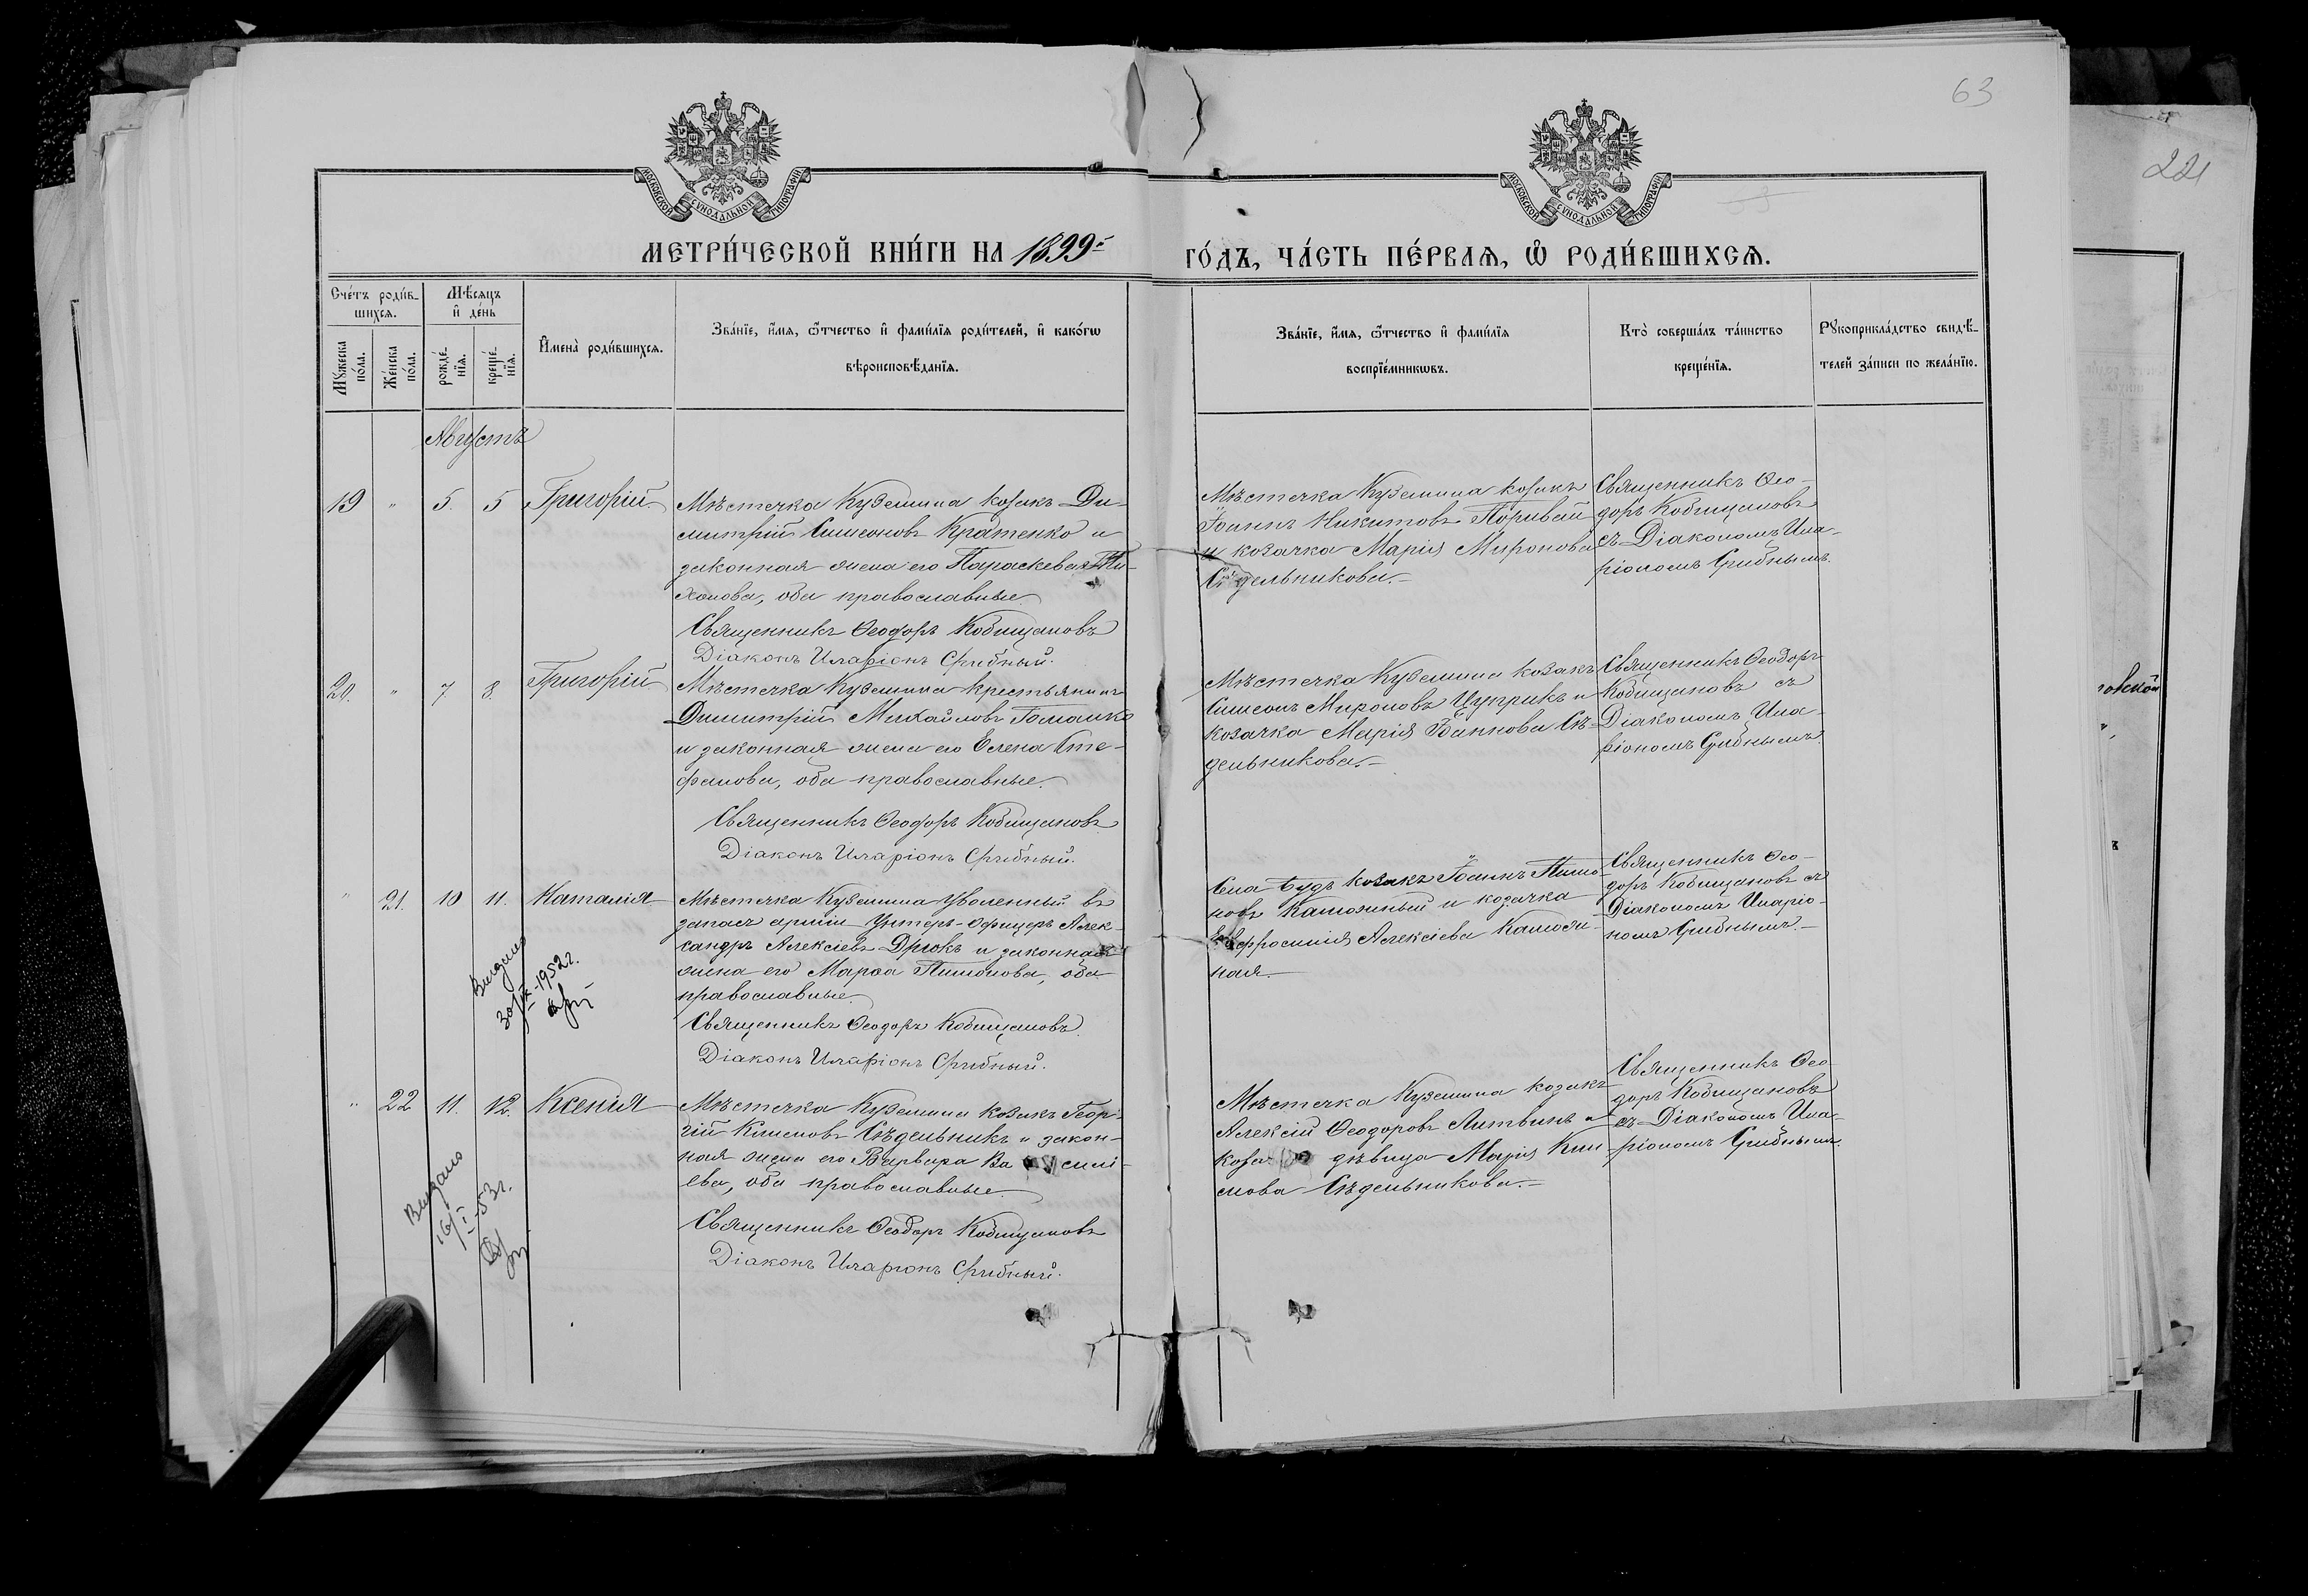 63
221
МОСКОВСКОЙ СУНОДАЛЬНОЙ ТИПОГРАФІИ
МОСКОВСКОЙ СУНОДАЛЬНОЙ ТИПОГРАФІИ
МЕТРИ́ЧЕСКОЙ КНИ́ГИ НА 1899й
ГО́ДЪ, ЧА́СТЬ ПЕ́РВАѦ, Ѡ҆ РОДИ́ВШИХСѦ.
Сче́тъ роди́в-
шихсѧ.
Мѣ́сѧцъ
и҆ де́нь
Мꙋ́жеска по́ла.
Же́нска по́ла.
рожде́-
нїѧ.
креще́-
нїѧ.
И҆мена̀ роди́вшихсѧ.
Зва́нїе, и҆́мѧ, ѻ҆́тчество и҆ фами́лїѧ роди́телей, и҆ како́гѡ
вѣроисповѣ́данїѧ.
Зва́нїе, и҆́мѧ, ѻ҆́тчество и҆ фами́лїѧ
воспрїе́мникѡвъ.
Кто̀ соверша́лъ та́инство
креще́нїѧ.
Рꙋкоприкла́дство свидѣ́-
телей за́писи по жела́нїю.
Августъ
19 " 5. 5 Григорій
Мѣстечка Куземина козакъ Ди-
митрій Симеоновъ Кратенко и
законная жена его Параскева Ти-
хонова, оба православные
Священникъ Ѳеодоръ Кобищановъ
Діаконъ Иларіонъ Срибный.
Мѣстечка Куземина козакъ
Іоаннъ Никитовъ Поривай
и козачка Марія Миронова
Сѣдельникова.
Священникъ Ѳео-
доръ Кобищановъ
съ Діакономъ Ила-
ріономъ Срибнымъ.
20. " 7 8. Григорій
Мѣстечка Куземина крестьянинъ
Димитрій Михайловъ Гоманко
и законная жена его Елена Сте-
фанова, оба православные.
Священникъ Ѳеодоръ Кобищановъ
Діаконъ Иларіонъ Срибный.
Мѣстечка Куземина козакъ
Симеонъ Мироновъ Цуприкъ и
козачка Марія Іоаннова Сѣ-
дельникова.
Священникъ Ѳеодоръ
Кобищановъ съ
Діакономъ Ила-
ріономъ Срибнымъ.
" 21. 10 11. Наталія
Мѣстечка Куземина уволенный въ
запасъ арміи унтеръ-офицеръ Алек-
сандръ Алексіевъ Дрюкъ и законная
жена его Марѳа Пимонова, оба
православные.
Священникъ Ѳеодоръ Кобищановъ
Діаконъ Иларіонъ Срибный.
Села Будъ козакъ Іоаннъ Пимо-
новъ Камозиный и козачка
Евфросинія Алексіева Камози-
ная.
Священникъ Ѳео-
доръ Кобищановъ съ
Діакономъ Иларіо-
номъ Срибнымъ.
Видано
30/IX-1952г.
" 22 11. 12. Ксенія
Мѣстечка Куземина козакъ Геор-
гій Климовъ Сѣдельникъ и закон-
ная жена его Варвара Ва силі-
ева, оба православные.
Священникъ Ѳеодоръ Кобищановъ
Діаконъ Иларіонъ Срибный.
Мѣстечка Куземина козакъ
Алексій Ѳеодоровъ Литвинъ и
коза дѣвица Марія Кли-
мова Сѣдельникова.
Священникъ Ѳео-
доръ Кобищановъ
съ Діакономъ Ила-
ріономъ Срибнымъ.
Видано
16/I-53г.